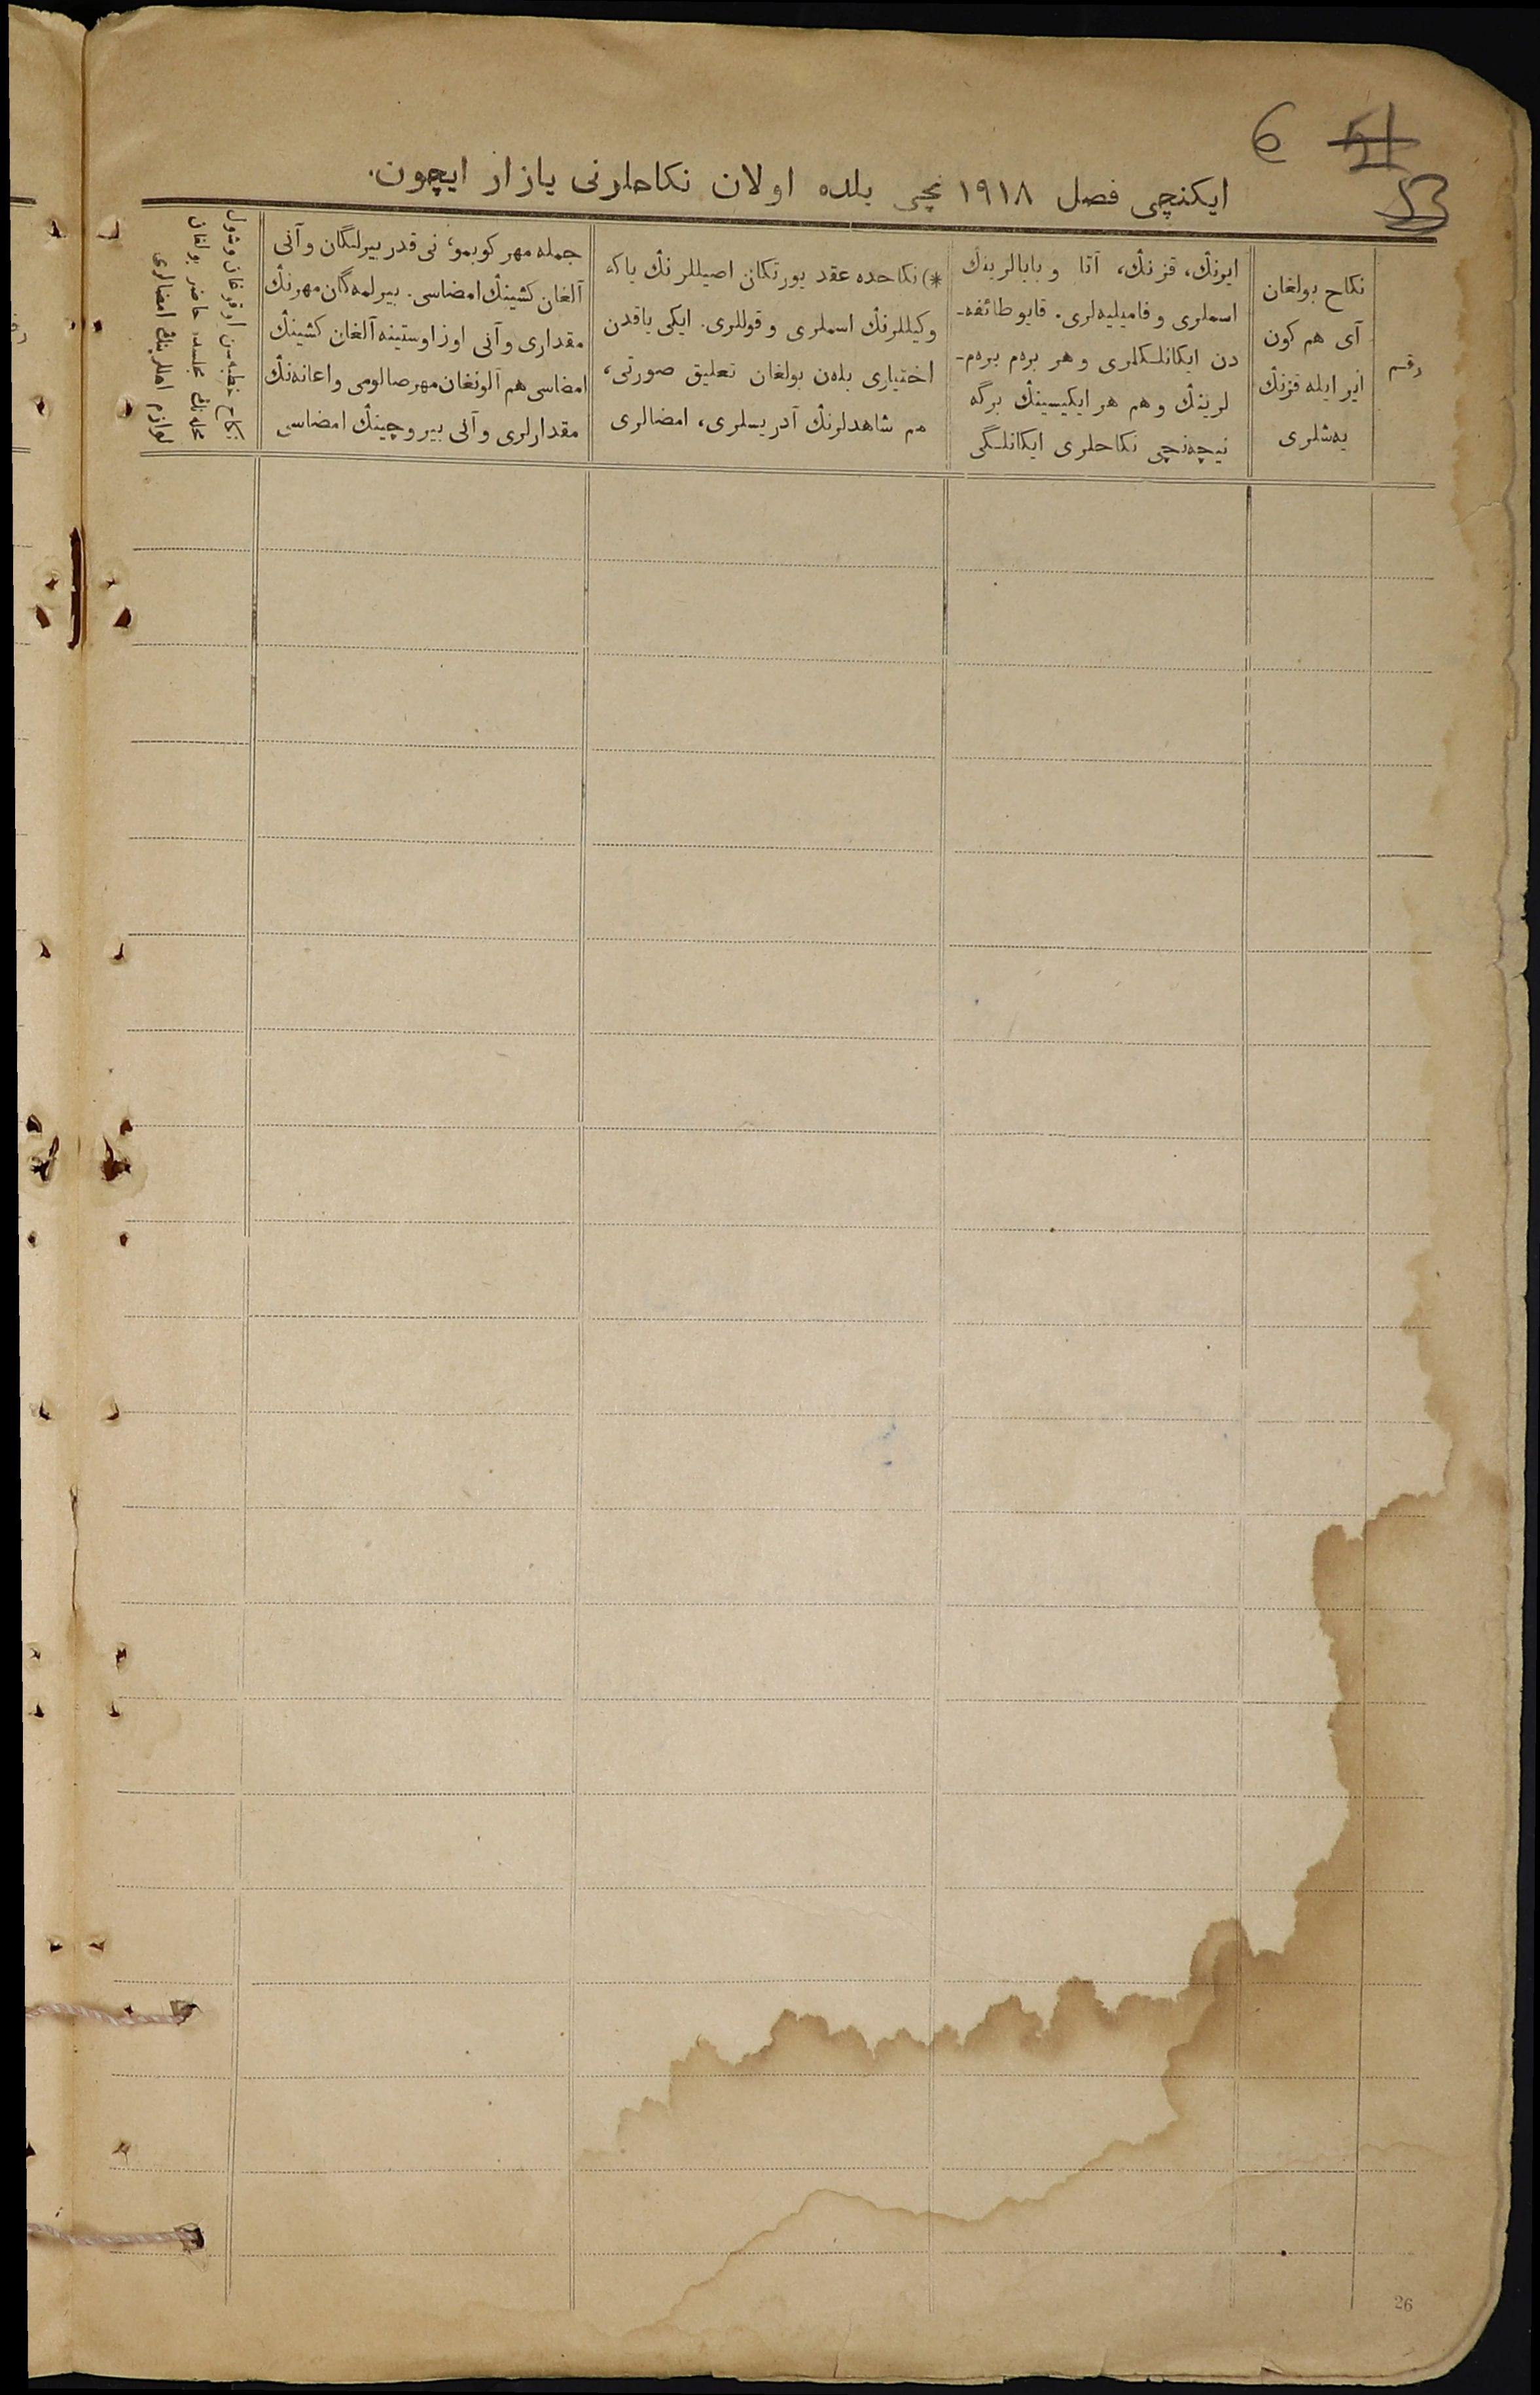 6 51
53
ایکنچی فصل ١٩١٨ نچی یلده اولان نکاحلرنی یازار ایچون.
رقم
نکاح بولغان
آی هم کون
ایر ایله قزنڭ
یەشلری
ایرنڭ، قزنڭ، آتا و بابالرینڭ
اسملری و فامیلیەلری. قایو طائفه-
دن ایکانلکلری و هر برەم برەم-
لرینڭ و هم هر ایکیسینڭ برگه
نیچەنچی نکاحلری ایکانلگی
*) نکاحده عقد یورتکان اصیللرنڭ یاکه
وکیللرنڭ اسملری و قوللری. ایکی یاقدن
اختیاری بلەن بولغان تعلیق صورتی،
هم شاهدلرنڭ آدریسلری، امضالری
جمله مهر کوبمو، نی قدر بیرلگان و آنی
آلغان کشینڭ امضاسی. بیرلمەگان مهرنڭ
مقداری و آنی اوز اوستینه آلغان کشینڭ
امضاسی هم آلونغان مهر صالومی و اعانەنڭ
مقدارلری و آنی بیروچینڭ امضاسی
نکاح خطبەسن اوقوغان و شول
محلەنڭ مجلسده حاضر بولغان
لوازم اهللرینڭ امضالری
26